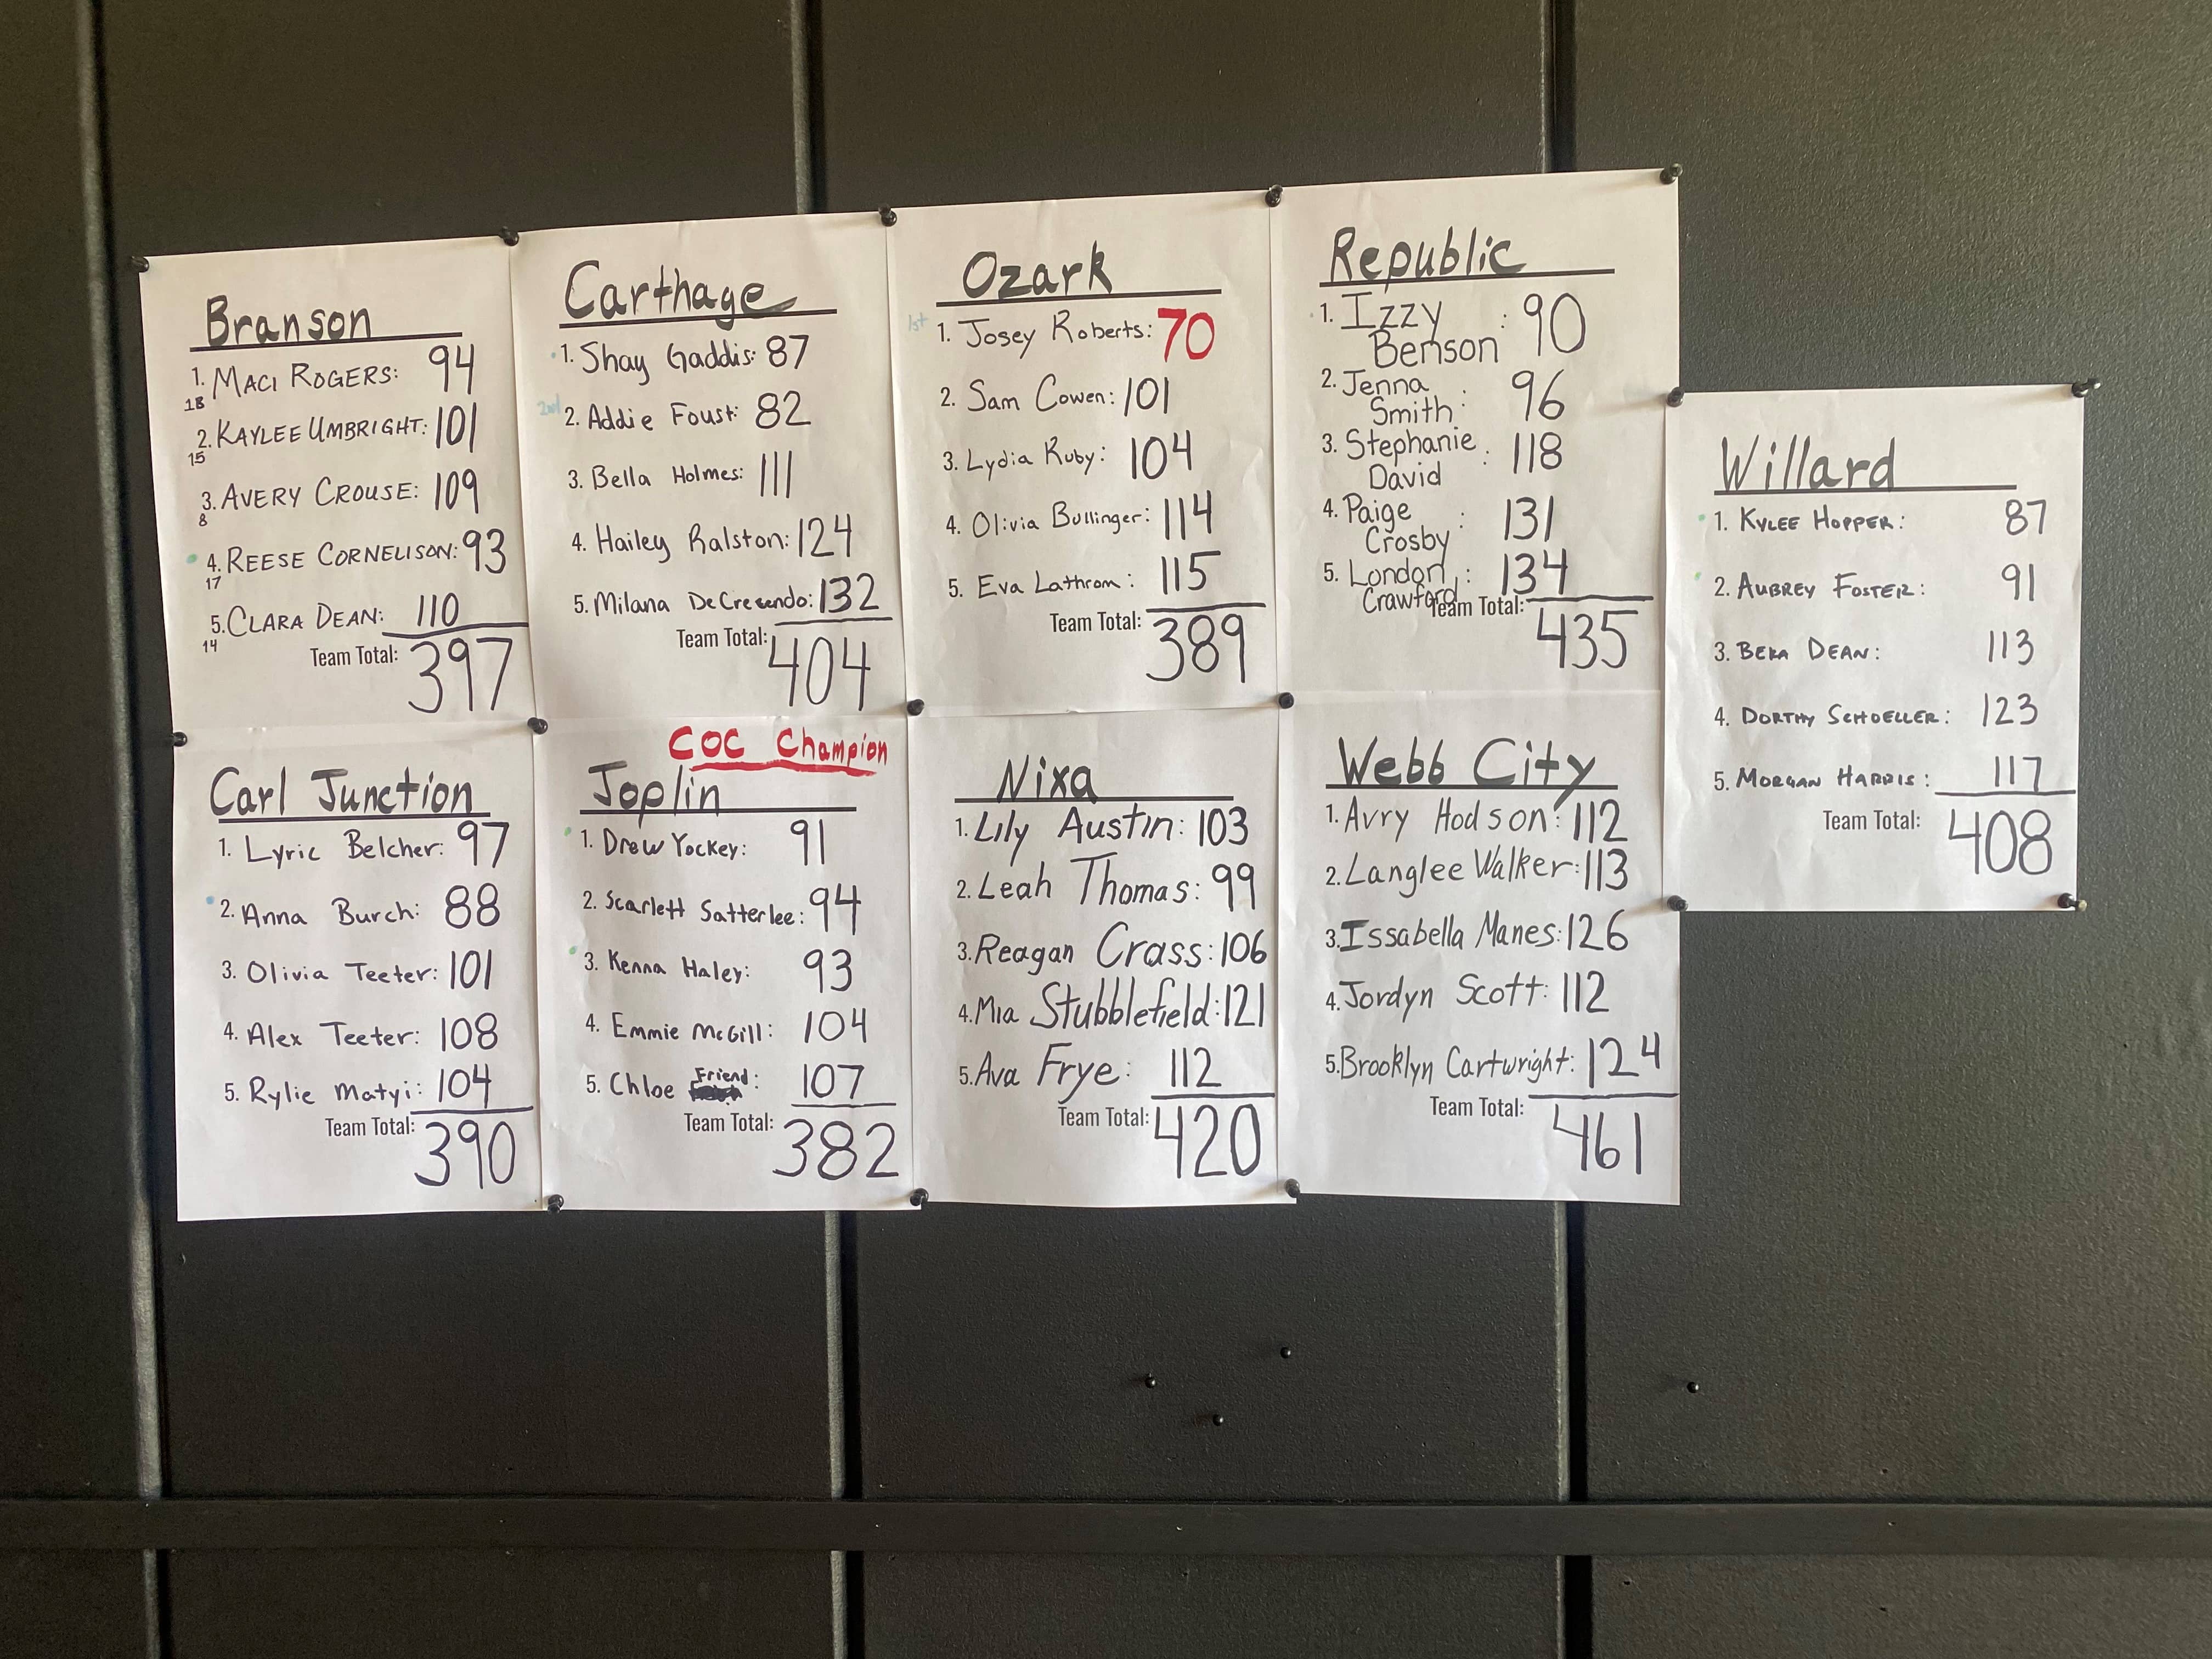 Branson
1. MACI ROGERS: 94
18
2. KAYLEE UMBRIGHT: 101
15
3. AVERY CROUSE: 109
8
4. REESE CORNELISON: 93
17
5. CLARA DEAN: 110
14
Team Total: 397
Carthage
1. Shay Gaddis: 87
2nd
2. Addie Foust: 82
3. Bella Holmes: 111
4. Hailey Ralston: 124
5. Milana DeCresendo: 132
Team Total: 404
Ozark
1st
1. Josey Roberts: 70
2. Sam Cowen: 101
3. Lydia Ruby: 104
4. Olivia Bullinger: 114
5. Eva Lathrom: 115
Team Total: 389
Republic
1. Izzy : 90
Benson
2. Jenna : 96
Smith
3. Stephanie : 118
David
4. Paige : 131
Crosby
5. London : 134
Crawford
Team Total: 435
Willard
1. KYLEE HOPPER: 87
2. AUBREY FOSTER: 91
3. BEKA DEAN: 113
4. DORTHY SCHOELLER: 123
5. MORGAN HARRIS: 117
Team Total: 408
Carl Junction
1. Lyric Belcher: 97
2. Anna Burch: 88
3. Olivia Teeter: 101
4. Alex Teeter: 108
5. Rylie Matyi: 104
Team Total: 390
COC Champion
Joplin
1. Drew Yockey: 91
2. Scarlett Satterlee: 94
3. Kenna Haley: 93
4. Emmie McGill: 104
5. Chloe Friend: 107
Team Total: 382
Nixa
1. Lily Austin: 103
2. Leah Thomas: 99
3. Reagan Crass: 106
4. Mia Stubblefield: 121
5. Ava Frye: 112
Team Total: 420
Webb City
1. Avry Hodson: 112
2. Langlee Walker: 113
3. Issabella Manes: 126
4. Jordyn Scott: 112
5. Brooklyn Cartwright: 124
Team Total: 461